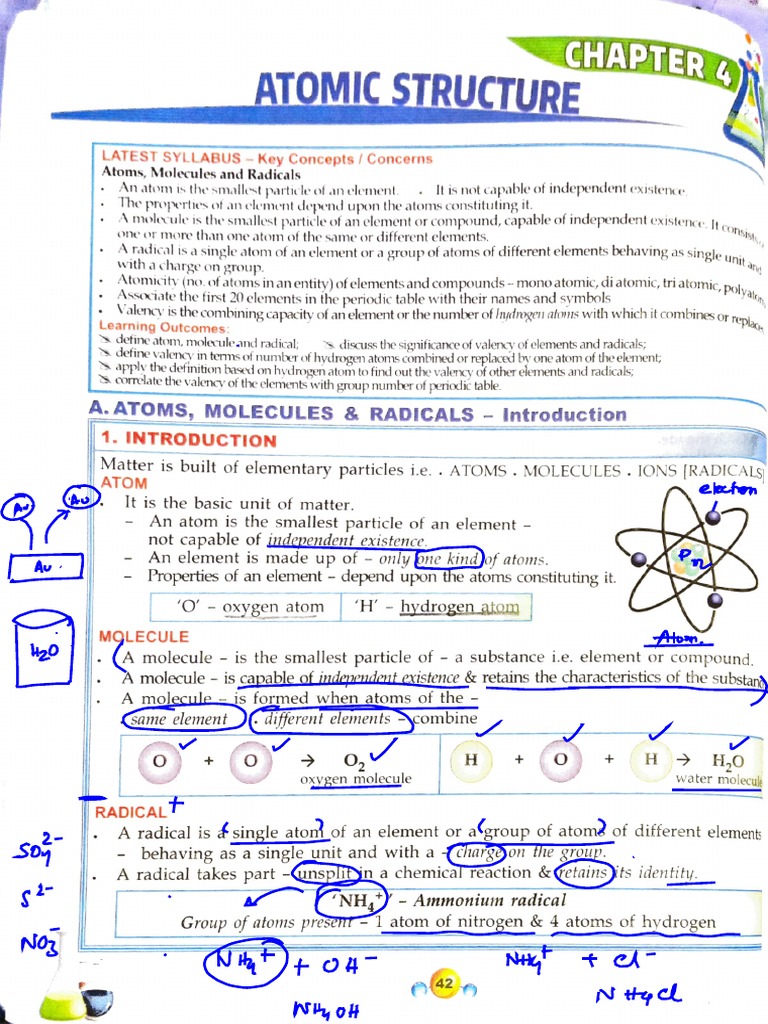 CHAPTER 4
ATOMIC STRUCTURE
LATEST SYLLABUS – Key Concepts / Concerns
Atoms, Molecules and Radicals
• An atom is the smallest particle of an element. • It is not capable of independent existence.
• The properties of an element depend upon the atoms constituting it.
• A molecule is the smallest particle of an element or compound, capable of independent existence. It consists
one or more than one atom of the same or different elements.
• A radical is a single atom of an element or a group of atoms of different elements behaving as single unit and
with a charge on group.
• Atomicity (no. of atoms in an entity) of elements and compounds – mono atomic, di atomic, tri atomic, polyatom
• Associate the first 20 elements in the periodic table with their names and symbols
• Valency is the combining capacity of an element or the number of hydrogen atoms with which it combines or replace
Learning Outcomes:
define atom, molecule and radical; discuss the significance of valency of elements and radicals;
define valency in terms of number of hydrogen atoms combined or replaced by one atom of the element;
apply the definition based on hydrogen atom to find out the valency of other elements and radicals;
correlate the valency of the elements with group number of periodic table.
A. ATOMS, MOLECULES & RADICALS – Introduction
1. INTRODUCTION
Matter is built of elementary particles i.e. • ATOMS • MOLECULES • IONS [RADICALS]
ATOM
• It is the basic unit of matter.
– An atom is the smallest particle of an element –
not capable of independent existence.
– An element is made up of – only one kind of atoms.
– Properties of an element – depend upon the atoms constituting it.
'O' – oxygen atom 'H' – hydrogen atom
electron
P n
Atom.
Au Au
Au.
H2O
MOLECULE
• A molecule – is the smallest particle of – a substance i.e. element or compound.
• A molecule – is capable of independent existence & retains the characteristics of the substanc
• A molecule – is formed when atoms of the –
same element • different elements – combine
O + O → O₂ H + O + H → H₂O
oxygen molecule water molecule
RADICAL +
• A radical is a single atom of an element or a group of atoms of different elements
– behaving as a single unit and with a – charge on the group.
• A radical takes part – unsplit in a chemical reaction & retains its identity.
'NH₄⁺' – Ammonium radical
Group of atoms present – 1 atom of nitrogen & 4 atoms of hydrogen
SO₄²⁻
S²⁻
NO₃⁻
NH₄⁺ + OH⁻ NH₄⁺ + Cl⁻
42
NH₄OH NH₄Cl